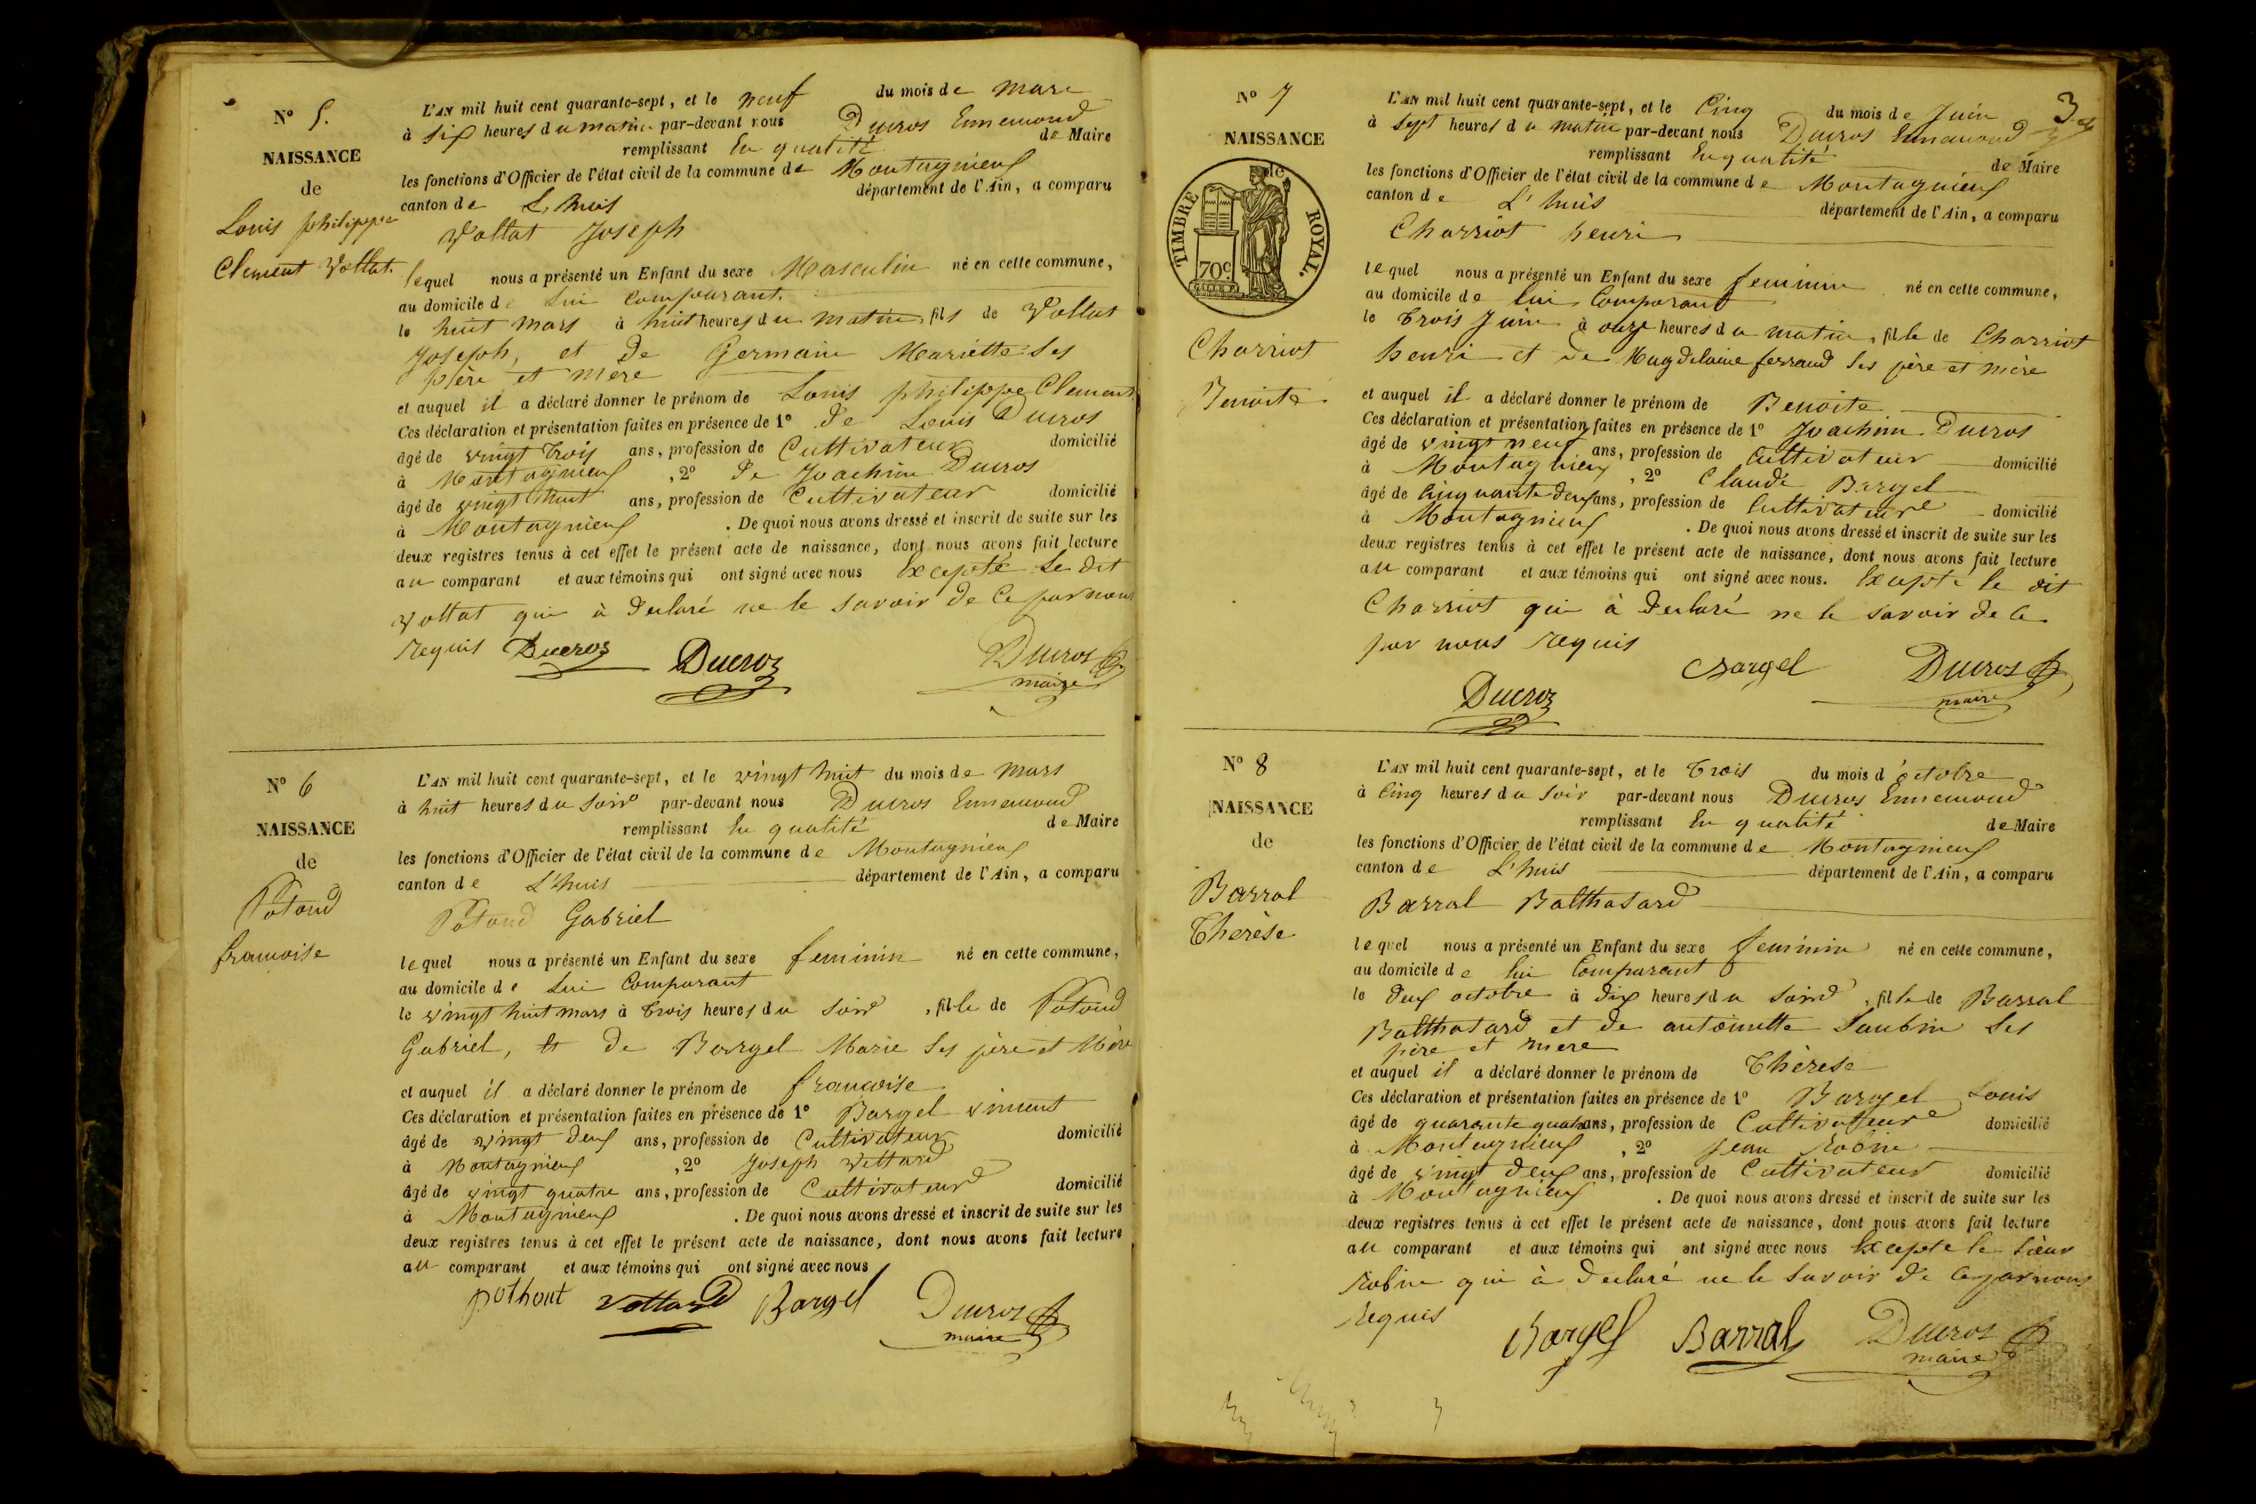 N° 5.
NAISSANCE
de
Louis philippe
Clement Vollat.
L'AN mil huit cent quarante-sept, et le neuf du mois de mars
à six heures du matin par-devant nous Ducros Ennemond
remplissant En qualité de Maire
les fonctions d'Officier de l'état civil de la commune de Montagnieux
canton de L'huis département de l'Ain, a comparu
Vollat Joseph
lequel nous a présenté un Enfant du sexe Masculin né en cette commune,
au domicile de Lui Comparant.
le huit mars à huit heures du matin, fils de Vollat
Joseph, et De Germain Mariette Ses
père et mere
et auquel il a déclaré donner le prénom de Louis philippe Clement
Ces déclaration et présentation faites en présence de 1° de Louis Ducros
âgé de vingt trois ans, profession de Cultivateur domicilié
à Montagnieux , 2° De Joachim Ducros
âgé de vingt huit ans, profession de Cultivateur domicilié
à Montagnieux . De quoi nous avons dressé et inscrit de suite sur les
deux registres tenus à cet effet le présent acte de naissance, dont nous avons fait lecture
au comparant et aux témoins qui ont signé avec nous Excepté Le dit
Vollat qui à Declaré ne le savoir de Ce par nous
requis Ducroz Ducroz Ducros
maire
N° 6
NAISSANCE
de
Potoud
francoise
L'AN mil huit cent quarante-sept, et le vingt huit du mois de mars
à huit heures du soir par-devant nous Ducros Ennemond
remplissant En qualité de Maire
les fonctions d'Officier de l'état civil de la commune de Montagnieux
canton de L'huis département de l'Ain, a comparu
Potoud Gabriel
lequel nous a présenté un Enfant du sexe feminin né en cette commune,
au domicile de Lui Comparant
le vingt huit mars à trois heures du soir , fille de Potoud
Gabriel, et De Bargel Marie Ses père et Mère
et auquel il a déclaré donner le prénom de francoise
Ces déclaration et présentation faites en présence de 1° Bargel vincent
âgé de vingt deux ans, profession de Cultivateur domicilié
à Montagnieux , 2° Joseph Vettard
âgé de vingt quatre ans, profession de Cultivateur domicilié
à Montagnieux . De quoi nous avons dressé et inscrit de suite sur les
deux registres tenus à cet effet le présent acte de naissance, dont nous avons fait lecture
au comparant et aux témoins qui ont signé avec nous
pothout Vettard Bargel Ducros
maire
3
N° 7
NAISSANCE
TIMBRE ROYAL.
70c
Charriot
Benoite
L'AN mil huit cent quarante-sept, et le Cinq du mois de Juin
à sept heures du matin par-devant nous Ducros Ennemond
remplissant En qualité de Maire
les fonctions d'Officier de l'état civil de la commune de Montagnieux
canton de L'huis département de l'Ain, a comparu
Charriot henri
lequel nous a présenté un Enfant du sexe feminin né en cette commune,
au domicile de lui Comparant
le trois Juin à onze heures du matin, fille de Charriot
henri et de Magdelaine ferrand Ses père et mère
et auquel il a déclaré donner le prénom de Benoite
Ces déclaration et présentation faites en présence de 1° Joachim Ducros
âgé de vingt neuf ans, profession de Cultivateur domicilié
à Montagnieux , 2° Claude Bargel
âgé de Cinquante deux ans, profession de Cultivateur domicilié
à Montagnieux . De quoi nous avons dressé et inscrit de suite sur les
deux registres tenus à cet effet le présent acte de naissance, dont nous avons fait lecture
au comparant et aux témoins qui ont signé avec nous. Excepté le dit
Charriot qui à Declaré ne le savoir de Ce
par nous requis
Bargel Ducros
Ducroz maire
N° 8
NAISSANCE
de
Barral
Thérèse
L'AN mil huit cent quarante-sept, et le trois du mois d'octobre
à Cinq heures du soir par-devant nous Ducros Ennemond
remplissant En qualité de Maire
les fonctions d'Officier de l'état civil de la commune de Montagnieux
canton de L'huis département de l'Ain, a comparu
Barral Balthasard
lequel nous a présenté un Enfant du sexe feminin né en cette commune,
au domicile de lui Comparant
le deux octobre à dix heures du soir , fille de Barral
Balthasard et de antoinette Saubin Ses
père et mere
et auquel il a déclaré donner le prénom de Thérèse
Ces déclaration et présentation faites en présence de 1° Bargel Louis
âgé de quarante quatre ans, profession de Cultivateur domicilié
à Montagnieux , 2° Jean Robin
âgé de vingt deux ans, profession de Cultivateur domicilié
à Montagnieux . De quoi nous avons dressé et inscrit de suite sur les
deux registres tenus à cet effet le présent acte de naissance, dont nous avons fait lecture
au comparant et aux témoins qui ont signé avec nous Excepte le Sieur
Robin qui à Declaré ne le savoir de Ce par nous
Requis
Bargel Barral Ducros
maire